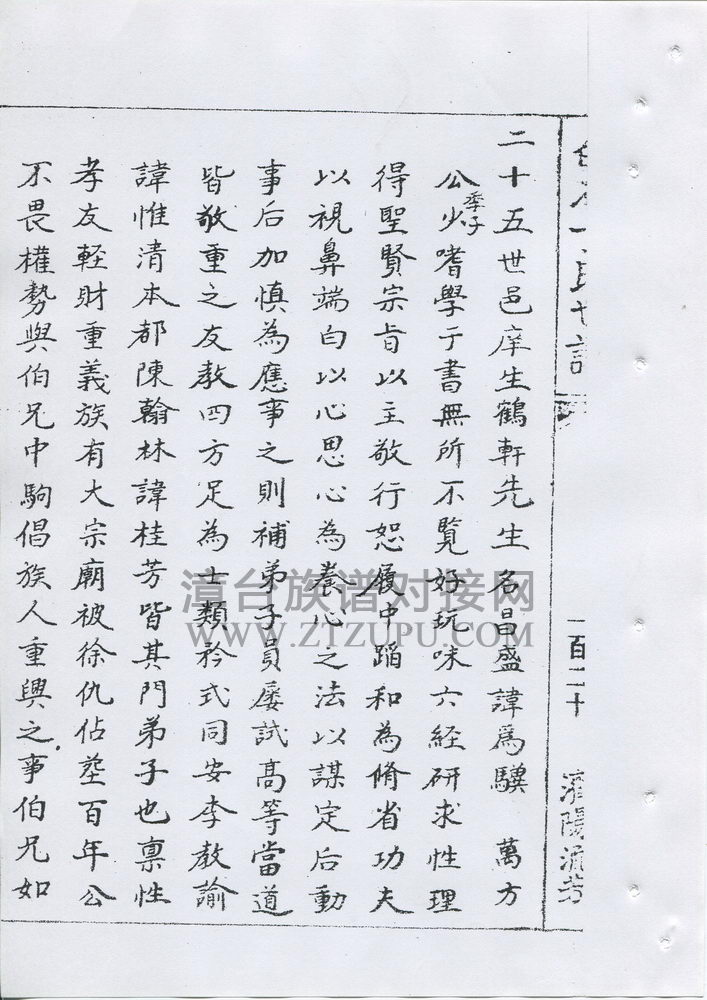 二十五世邑庠生鶴軒先生名昌盛諱為驥 萬方
季子
公少嗜學于書無所不覽好玩味六经研求性理
得聖賢宗旨以主敬行恕履中蹈和為脩省功夫
以視鼻端白以心思心為養心之法以謀定后動
事后加慎為應事之則補弟子員屡試高等當道
皆敬重之友教四方足為士類矜式同安李教諭
諱惟清本都陳翰林諱桂芳皆其門弟子也禀性
孝友輕財重義族有大宗廟被徐仇佔塟百年公
不畏權勢與伯兄中駒倡族人重興之事伯兄如
一百二十
漳台族谱对接网
WWW.ZTZUPU.COM